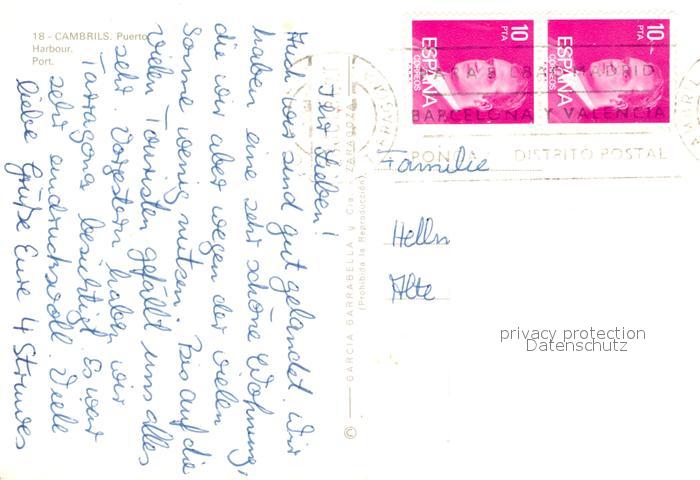 18 - CAMBRILS. Puerto
Harbour.
Port.
Ihr Lieben!
Auch wir sind gut gelandet. Wir
haben eine sehr schöne Wohnung,
die wir aber wegen der vielen
Sonne wenig nutzen. Bis auf die
vielen Touristen gefällt uns alles
sehr. Vorgestern haben wir
Tarragona besichtigt. Es war
sehr eindrucksvoll. Viele
liebe Grüße Eure 4 Struves
© GARCIA GARRABELLA y Cia. - ZARAGOZA
(Prohibida la Reproducción)
10 PTA
ESPAÑA
CORREOS
10 PTA
ESPAÑA
CORREOS
BILBAO MADRID
BARCELONA Y VALENCIA
PONGA DISTRITO POSTAL
Familie
Hellm
Alte
privacy protection
Datenschutz